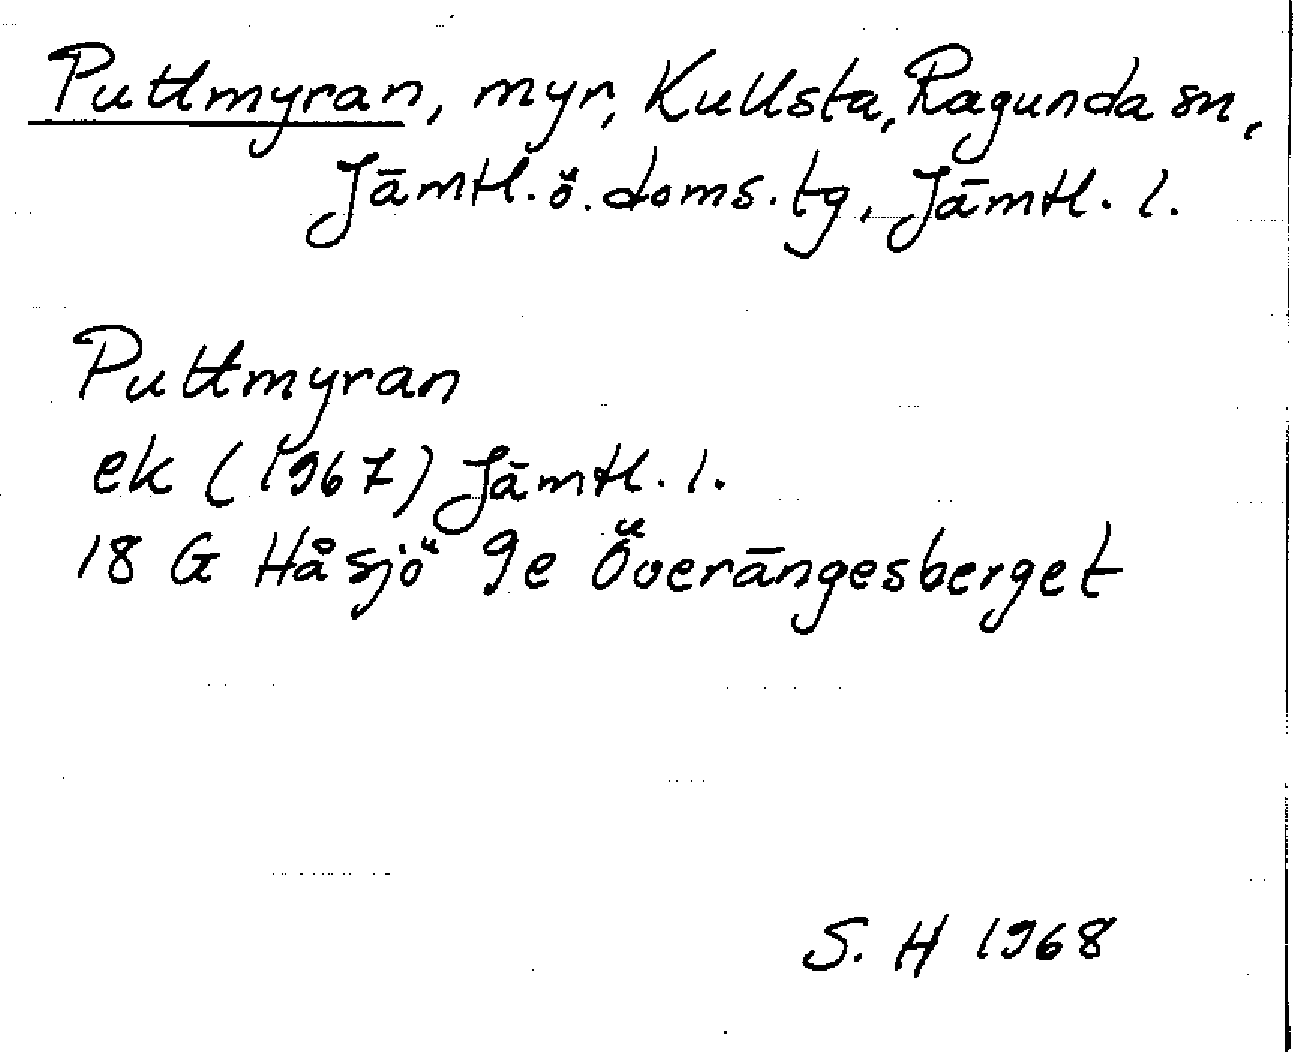 Puttmyran, myr, Kullsta, Ragunda sn,
Jämtl. ö. doms. tg, Jämtl. l.
Puttmyran
ek (1967) Jämtl. l.
18 G Håsjö 9e Överängesberget
S. H 1968